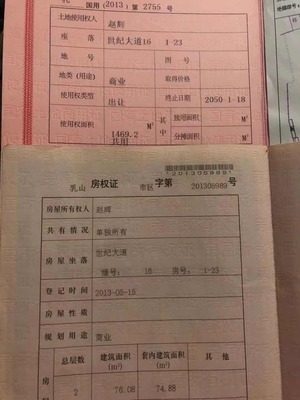 国用(2013)第2755号
土地使用权人 赵辉
座落 世纪大道16 1-23
地号 图号
地类(用途) 商业 取得价格
使用权类型 出让 终止日期 2050-1-18
使用权面积 1469.2 M² 其中 独用面积 M²
共用 分摊面积 M²
201308989
乳山 房权证 市区 字第 201308989 号
房屋所有权人 赵辉
共有情况 单独所有
房屋坐落 世纪大道
幢号: 16 房号: 1-23
登记时间 2013-05-15
房屋性质
规划用途 商业
总层数 建筑面积(m²) 套内建筑面积(m²) 其他
房 2 76.08 74.88